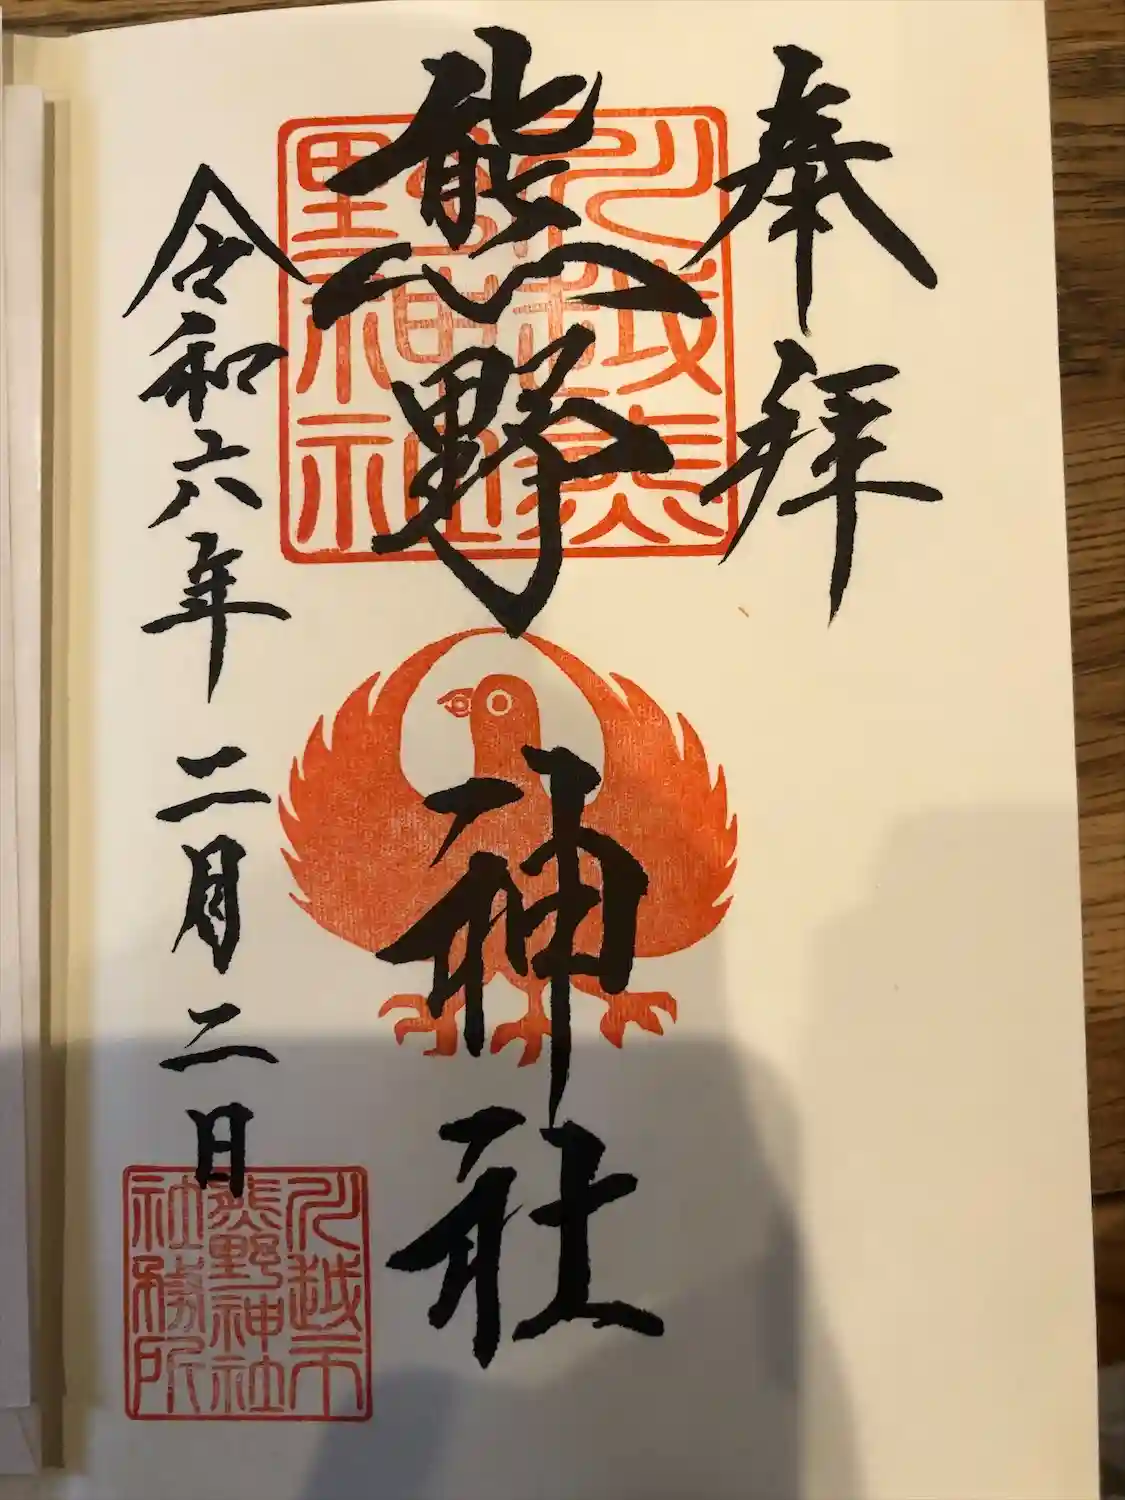 奉拝
熊野神社
令和六年二月二日
川越市
熊野神社
社務所